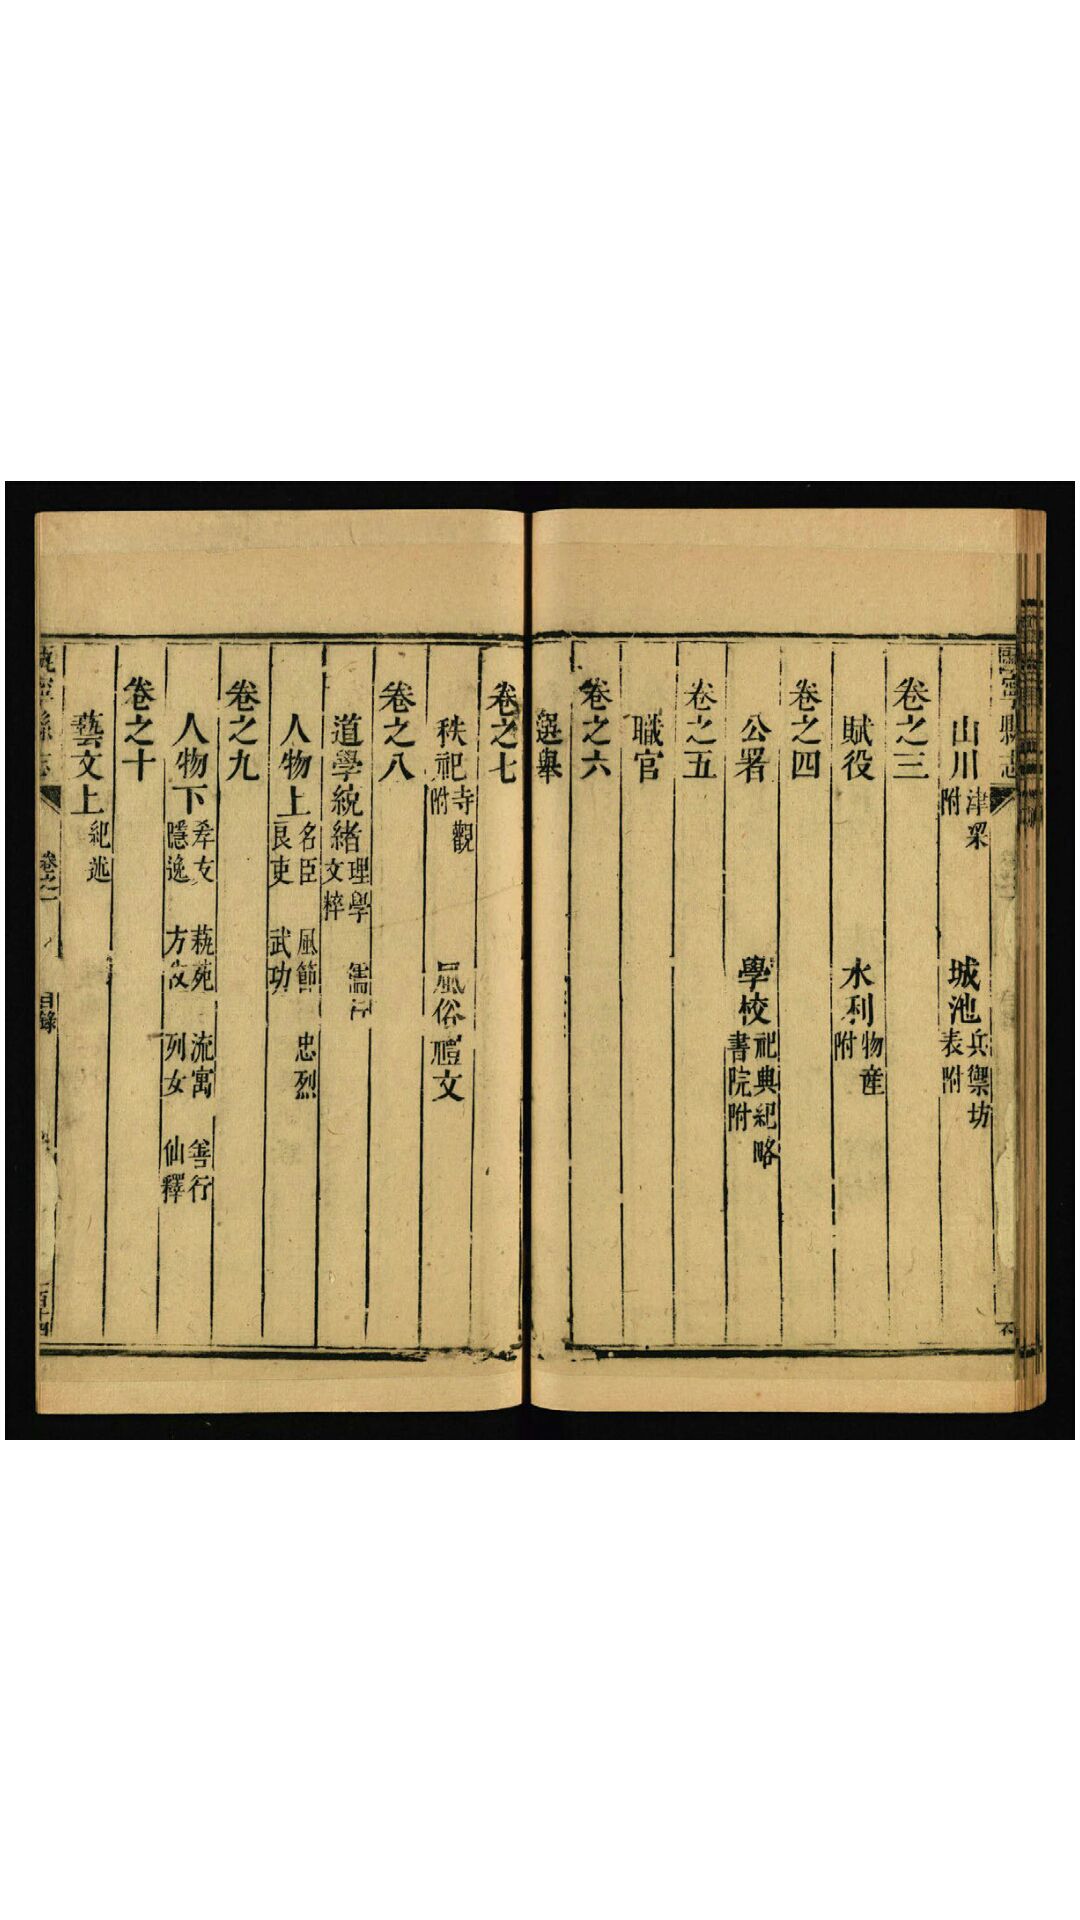 山川 津梁附 城池 兵禦坊表附
卷之三
賦役 水利 物產附
卷之四
公署 學校 祀典紀略書院附
卷之五
職官
卷之六
選舉
卷之七
秩祀 寺觀附 風俗 禮文
卷之八
道學統緒 理學 儒行 文粹
人物上 名臣 風節 忠烈 良吏 武功
卷之九
人物下 孝友 蓺苑 流寓 善行 隱逸 方伎 列女 仙釋
卷之十
藝文上 紀述
寧縣志 卷之一 目錄